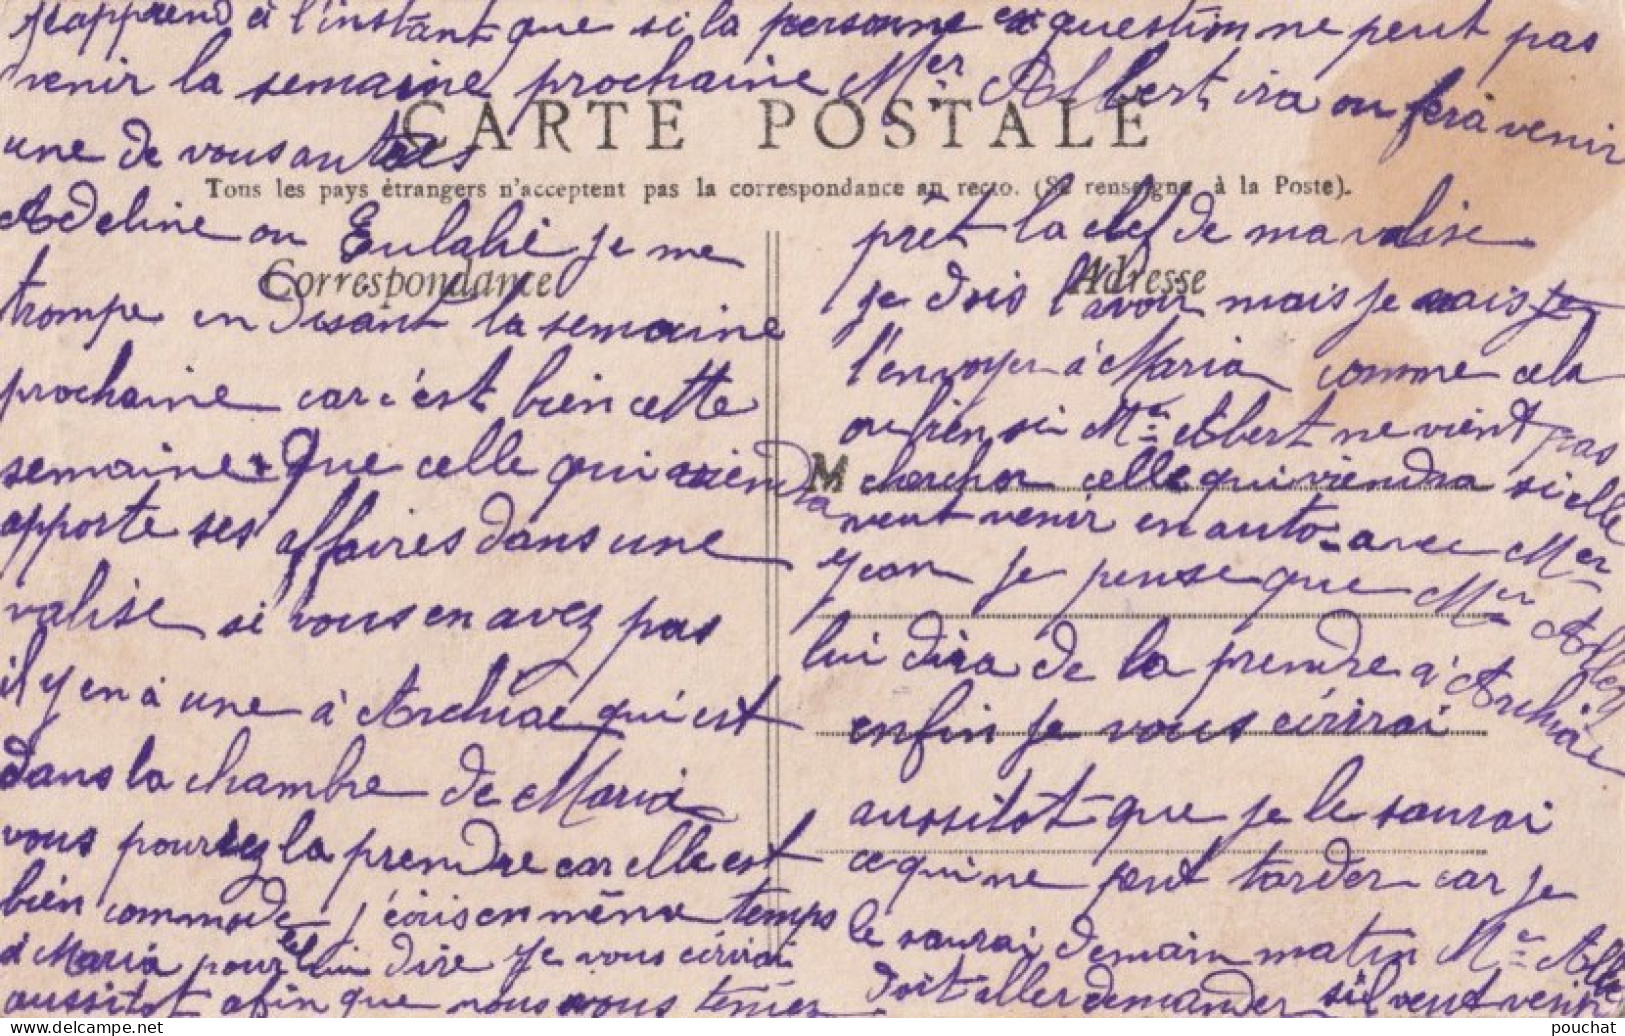 j'apprend à l'instant que si la personne en question ne peut pas
venir la semaine prochaine Mer Albert ira ou fera venir
CARTE POSTALE
une de vous autres
Tous les pays étrangers n'acceptent pas la correspondance au recto. (Se renseigne à la Poste).
Correspondance
Adeline ou Eulalie je me
trompe en disant la semaine
prochaine car c'est bien cette
semaine. Que celle qui viendra
apporte ses affaires dans une
valise si vous en avez pas
il y en a une à Archiac qui est
dans la chambre de Maria
vous pourrez la prendre car elle est
bien commode j'écris en même temps
à Maria pour lui dire je vous écrirai
aussitot afin que vous vous teniez
Adresse
M
prêt la clef de ma valise
je dois l'avoir mais je vais
l'envoyer à Maria comme cela
ou bien si Mer Albert ne vient pas
chercher celle qui viendra si elle
veut venir en auto avec Mer
Jean je pense que Mer Albert
lui dira de la prendre à Archiac
enfin je vous écrirai
aussitot que je le saurai
ce qui ne peut tarder car je
le saurai demain matin Mer
doit aller demander s'il veut venir
pouchat